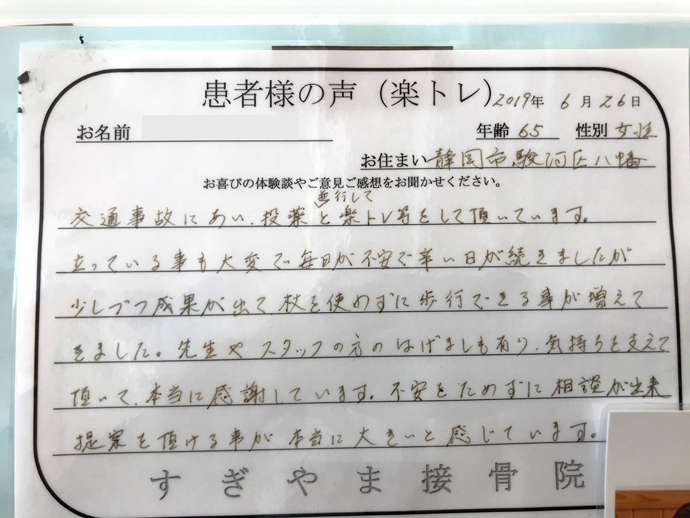 患者様の声（楽トレ）2019年 6月26日
お名前
年齢 65 性別 女性
お住まい 静岡市駿河区八幡
お喜びの体験談やご意見ご感想をお聞かせください。
並行して
交通事故にあい、投薬と楽トレ等をして頂いています。
立っている事も大変で毎日が不安で辛い日が続きましたが
少しづつ成果が出て、杖を使わずに歩行できる事が増えて
きました。先生やスタッフの方のはげましも有り、気持ちを支えて
頂いて、本当に感謝しています。不安をためずに相談が出来
提案を頂ける事が本当に大きいと感じています。
すぎやま接骨院